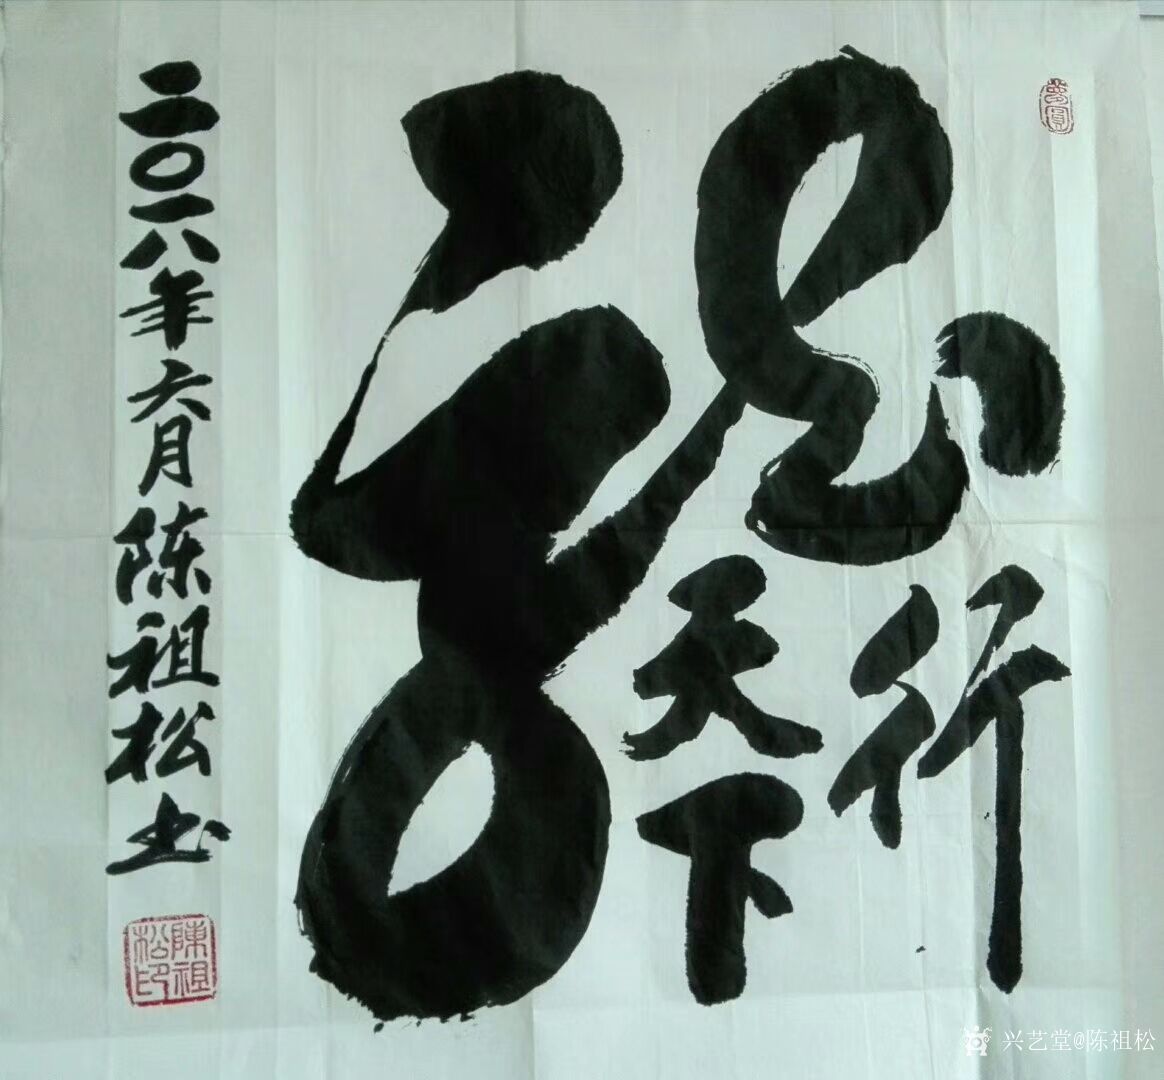 龍行
天下
二〇一八年六月陈祖松书
陳祖
松印
兴艺堂@陈祖松